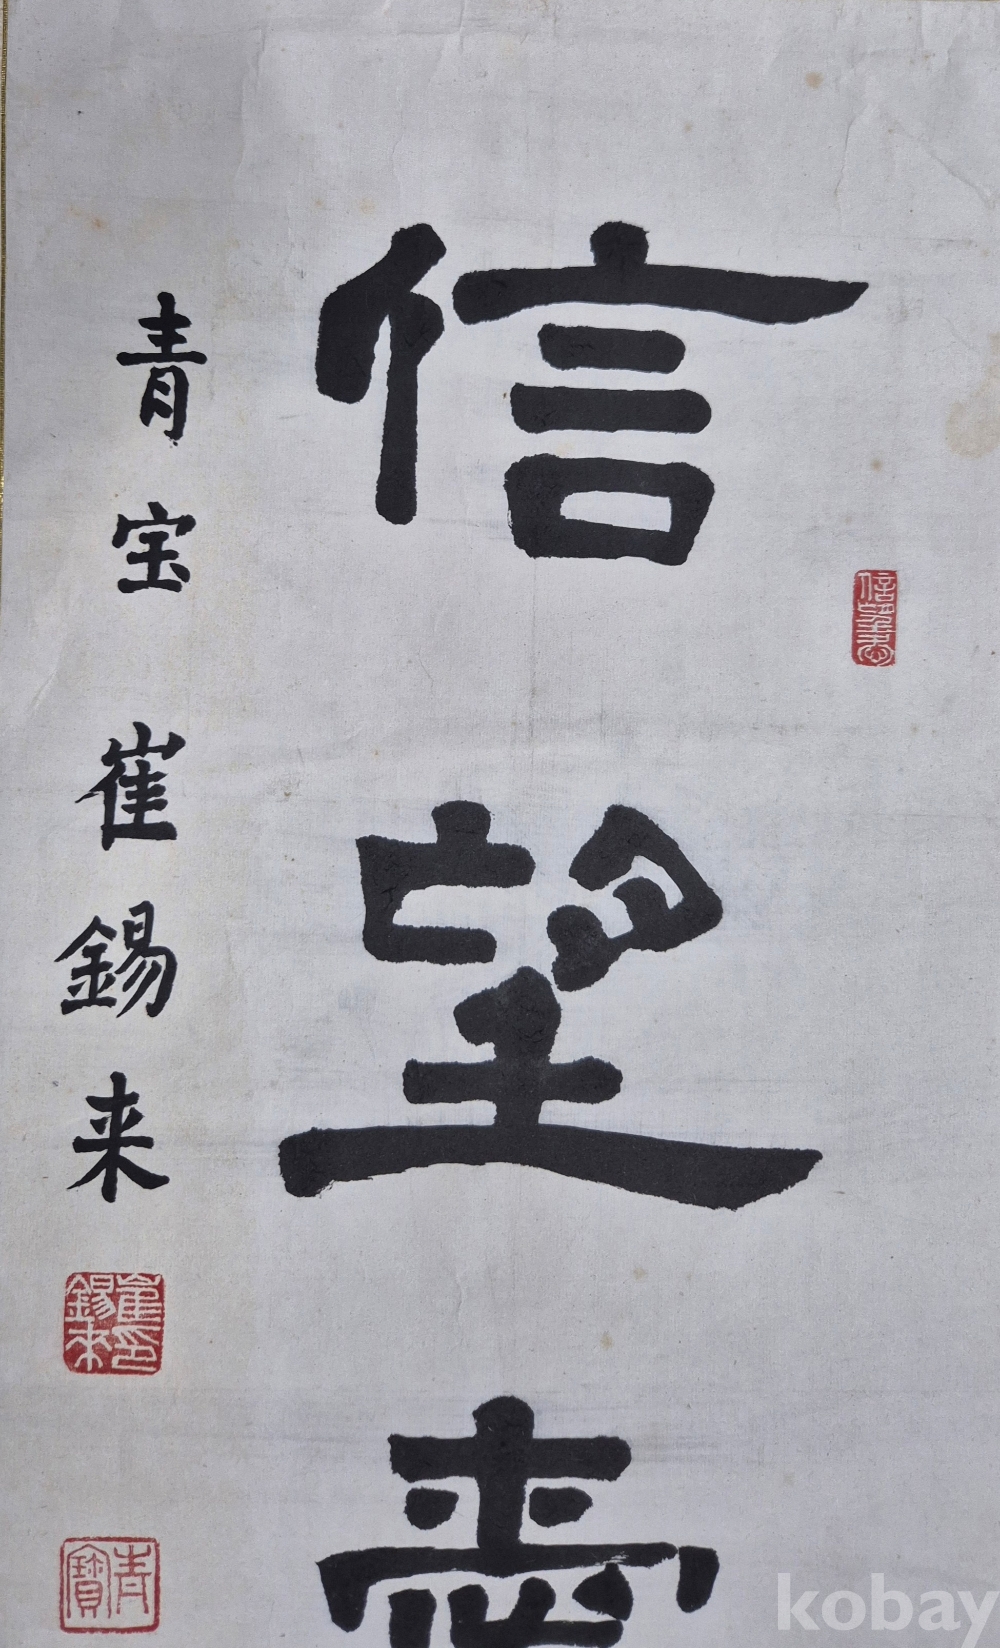 信望愛
信望愛
青宝 崔錫来
崔印錫来
青寶
kobay